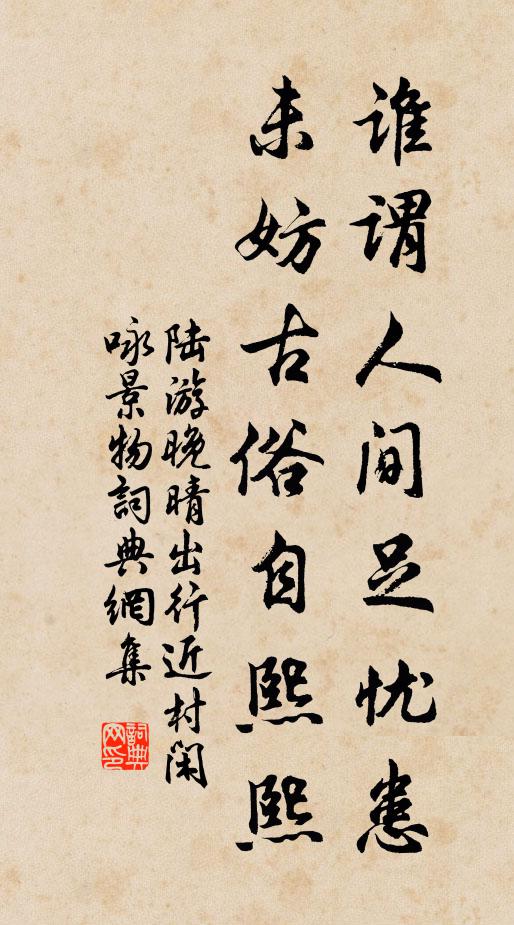 谁谓人间足忧患
未妨古俗自熙熙
陆游晚晴出行近村闲
咏景物詞典網集
詞典网印